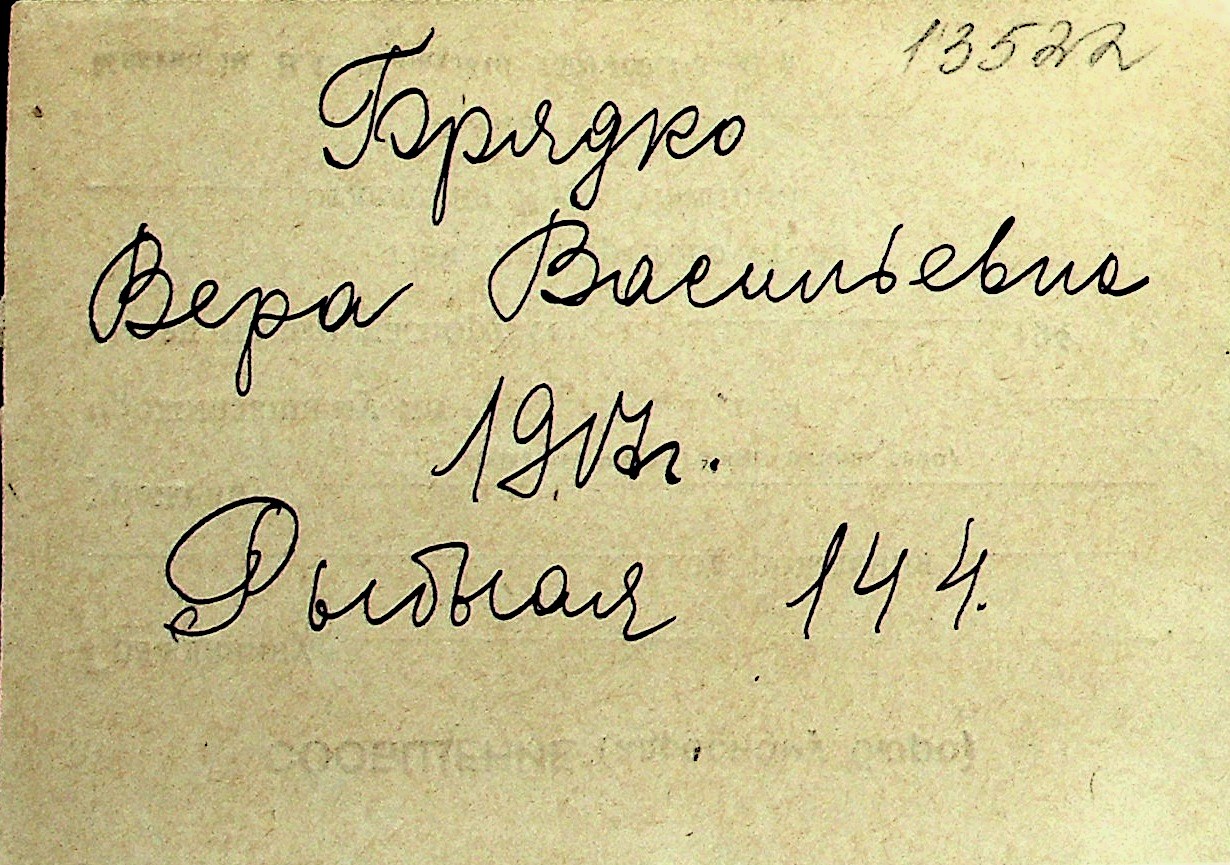 13522
Брядко
Вера Васильевна
1917г.
Рыбная 144.